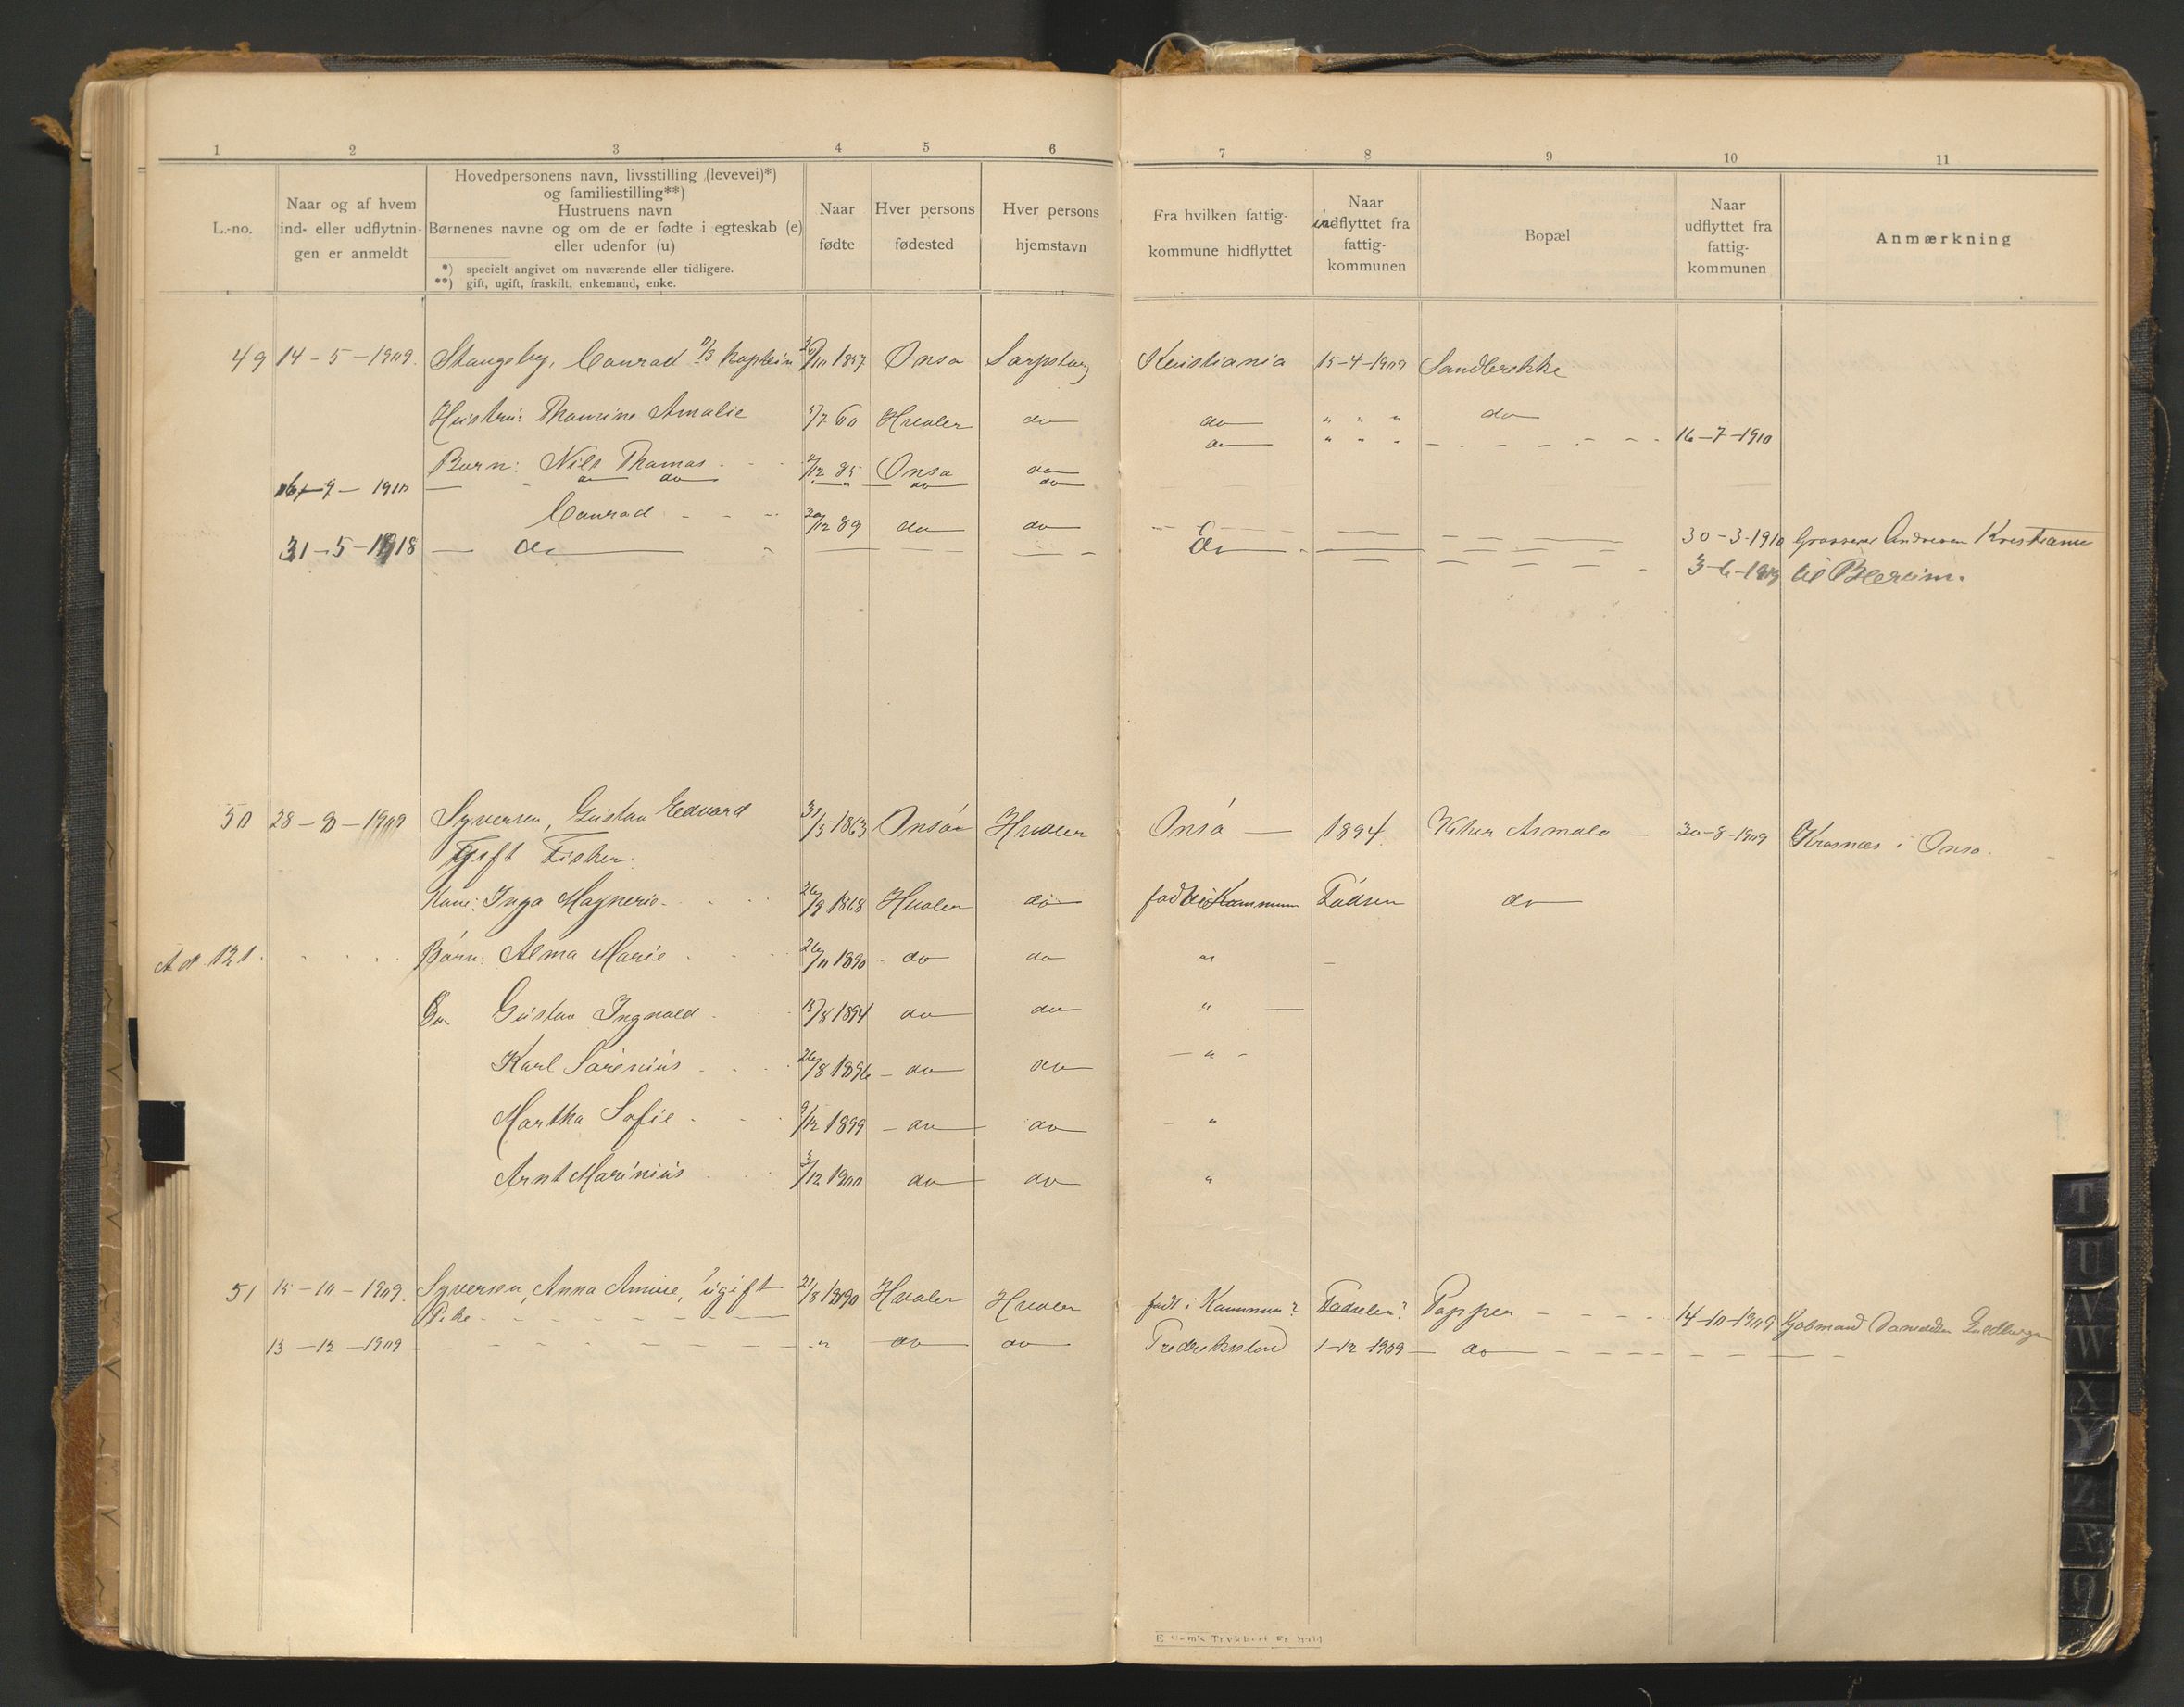 1 2 3 4 5 6 7 8 9 10 11
L.-no.
Naar og af hvem
ind- eller udflytnin-
gen er anmeldt
Hovedpersonens navn, livsstilling (levevei)*)
og familiestilling**)
Hustruens navn
Børnenes navne og om de er fødte i egteskab (e)
eller udenfor (u)
*) specielt angivet om nuværende eller tidligere.
**) gift, ugift, fraskilt, enkemand, enke.
Naar
fødte
Hver persons
fødested
Hver persons
hjemstavn
Fra hvilken fattig-
kommune hidflyttet
Naar
indflyttet fra
fattig-
kommunen
Bopæl
Naar
udflyttet fra
fattig-
kommunen
Anmærkning
49 14-5-1909. Stangeby, Conrad D/S kaptein 1857 Onsø Sarpsborg Kristiania 15-4-1909 Sandbrekke
Hustru: Thomine Amalie 5/7 60 Hvaler do do " " " do
Børn: Nils Thomas - - 2/12 85 Onsø do do " " " - - - - 16-7-1910
16-7-1910 — do do — " — do do
Conrad - - - 30/12 89 do do 30-3-1910 Grosserer Andresen Kristiania
31-5-1918 — do — do 3-6-1918 til Bærum.
50 28-8-1909 Syversen, Gustav Edvard 31/5 1863 Onsø Hvaler Onsø — 1894. Viker Asmalø — 30-8-1909 Krosnæs i Onsø.
Gift Fisker.
Kone: Inga Magnerio. 26/9 1868 Hvaler do født i Kommunen Fødsen do
Børn: Alma Marie 26/11 1890 do do "
Do Gustav Ingvald 15/8 1894 do do "
Karl Sørenius 26/8 1896 do do "
Martha Sofie 9/12 1899 do do "
Arnt Marinius 3/12 1900 do do "
51 15-10-1909. Syversen, Anna Amine, ugift 21/8 1890 Hvaler Hvaler født i Kommunen? Fødselen? Papper - - - 14-10-1909 Kjøbmand
Pike
13-12-1909 - - - " do do Fredrikstad 1-12-1909 — do
T
U
V
W
X
Y
Z
Æ
Ø